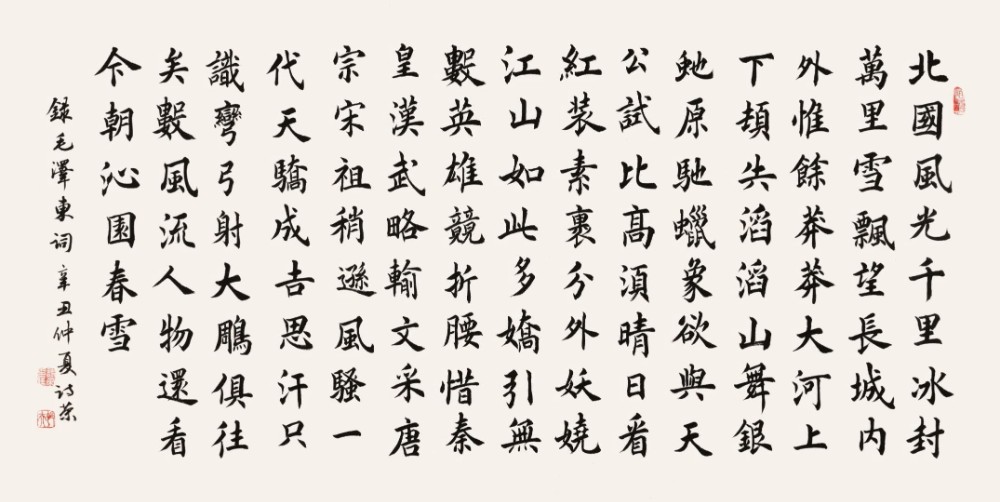 北國風光千里冰封
萬里雪飄望長城内
外惟餘莽莽大河上
下頓失滔滔山舞銀
虵原馳蠟象欲與天
公試比髙須晴日看
紅装素裹分外妖嬈
江山如此多嬌引無
數英雄競折腰惜秦
皇漢武略輸文采唐
宗宋祖稍遜風騷一
代天驕成吉思汗只
識彎弓射大鵰俱往
矣數風流人物還看
今朝沁園春雪
録毛澤東词辛丑仲夏